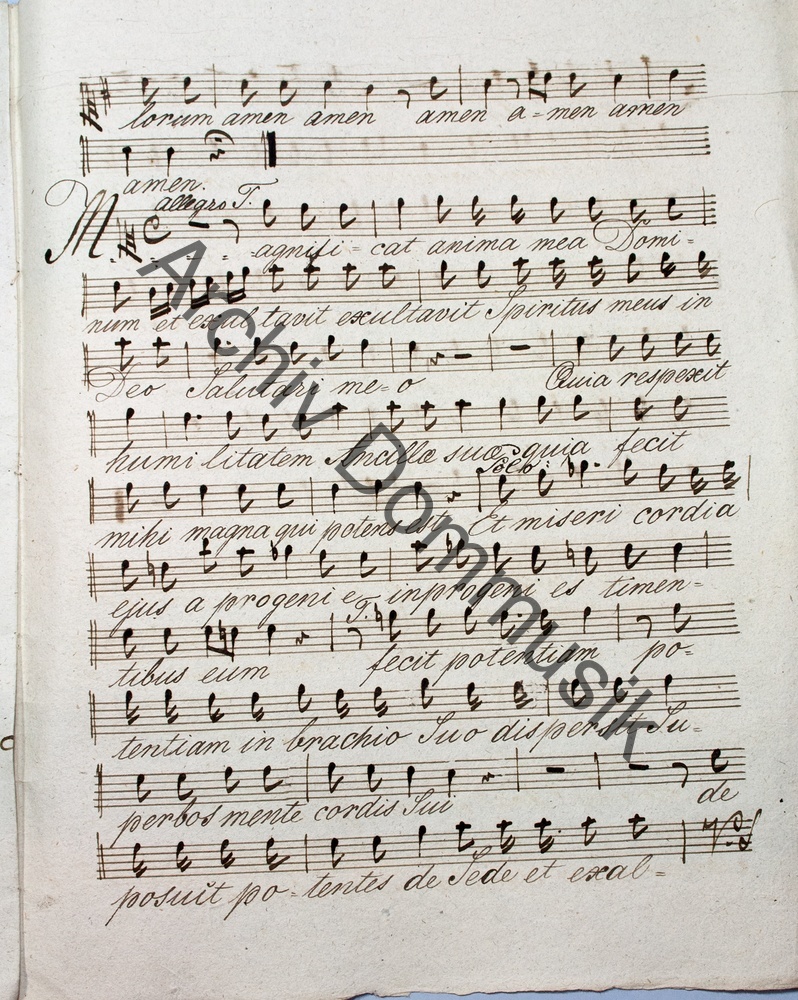 lorum amen amen amen a-men amen
amen.
allegro T.
Magnifi-cat anima mea Domi-
num et exultavit exultavit Spiritus meus in
Deo Salutari me-o Quia respexit
humilitatem Ancillæ suæ quia fecit
Solo:
mihi magna qui potens est Et misericordia
ejus a progenie inprogenies timen-
T.
tibus eum fecit potentiam po-
tentiam in brachio Suo dispersit Su-
perbos mente cordis Sui de
posuit po-tentes de Sede et exal-
Archiv Dommusik